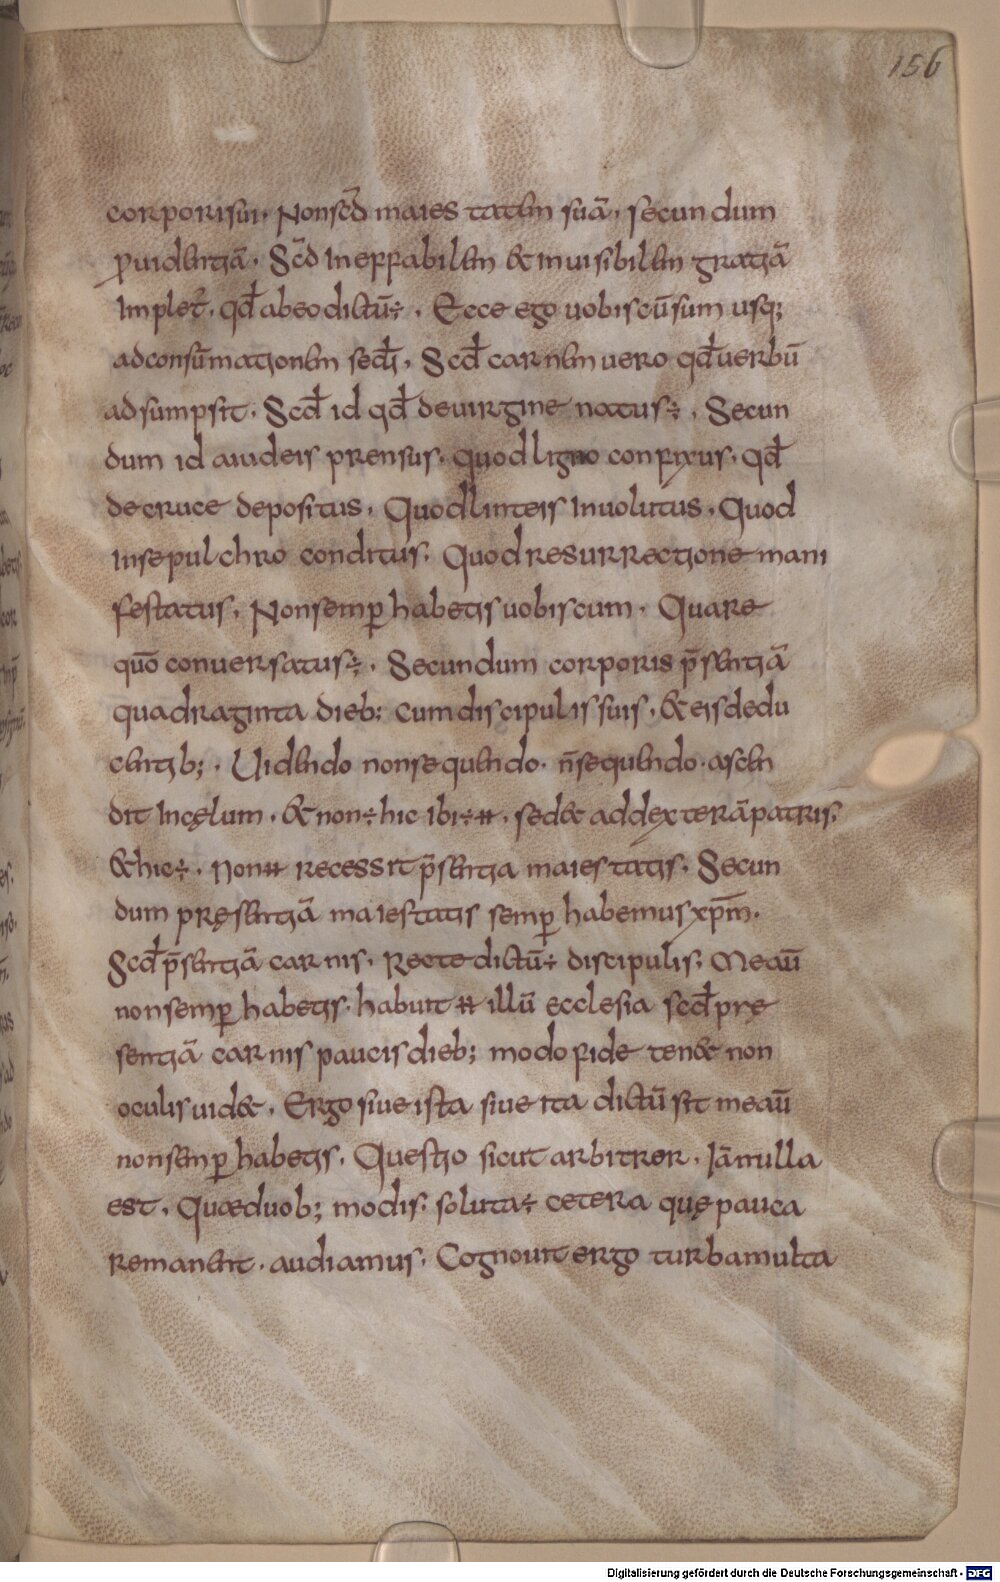 156
corporis sui. Non scd̄ maiestatem suā. secundum
ꝓuidentiā. Scd̄ ineffabilem & inuisibilem gratiā
implet̄. qd̄ ab eo dictū÷. Ecce ego uobiscū sum usq;
ad consūmationem secl̄i. Scd̄ carnem uero qd̄ uerbū
adsumpsit. Scd̄ id qd̄ de uirgine natus÷. Secun
dum id a iudeis prensus. quod ligno confixus. qd̄
de cruce depositus. Quod linteis inuolutus. Quod
in sepulchro conditus. Quod resurrectione mani
festatus. Non semꝑ habetis uobiscum. Quare
quō conuersatus÷. Secundum corporis p̄sentiā
quadraginta dieb; cum discipulis suis. & eis dedu
centib;. Uidendo non sequendo. n̄ sequendo. ascen
dit in cęlum. & non÷hic ibi÷ ħ. sed & ad dexterā patris.
& hic÷. Non ħ recessit p̄sentia maiestatis. Secun
dum pręsentiā maiestatis semꝑ habemus xp̄m.
Scd̄ p̄sentiā carnis. Recte dictū÷ discipulis. Me aū
non semꝑ habetis. habuit ħ illū ecclesia scd̄ prę
sentiā carnis paucis dieb; modo fide ten& non
oculis uid&. Ergo siue ista siue ita dictū sit me aū
non semꝑ habetis. Questio sicut arbitror. Iā nulla
est. Quæ duob; modis. soluta÷ cetera quę pauca
remanent. audiamus. Cognouit ergo turba multa
Digitalisierung gefördert durch die Deutsche Forschungsgemeinschaft - DFG